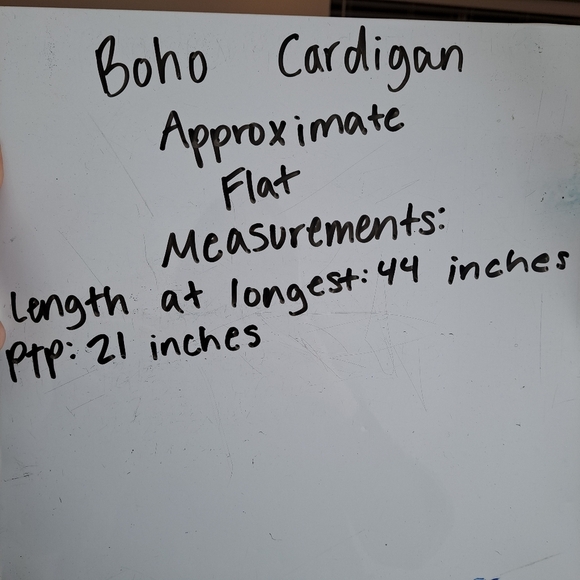 Boho Cardigan
Approximate
Flat
Measurements:
Length at longest: 44 inches
PtP: 21 inches